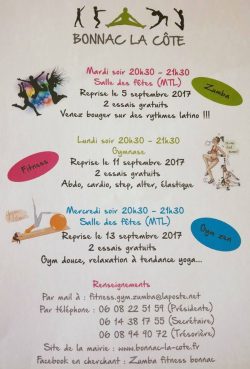 BONNAC LA CÔTE
Mardi soir 20h30 - 21h30
Salle des fêtes (MTL)
Zumba
Reprise le 5 septembre 2017
2 essais gratuits
Venez bouger sur des rythmes latino !!!
Lundi soir 20h30 - 21h30
Gymnase
Fitness
Reprise le 11 septembre 2017
2 essais gratuits
Abdo, cardio, step, alter, élastique
Mercredi soir 20h30 - 21h30
Salle des fêtes (MTL)
Gym zen
Reprise le 13 septembre 2017
2 essais gratuits
Gym douce, relaxation à tendance yoga...
Renseignements
Par mail à : fitness.gym.zumba@laposte.net
Par téléphone : 06 08 22 51 59 (Présidente)
06 14 38 17 55 (Secrétaire)
06 08 94 90 72 (Trésorière)
Site de la mairie : www.bonnac-la-cote.fr
Facebook en cherchant : Zumba fitness bonnac